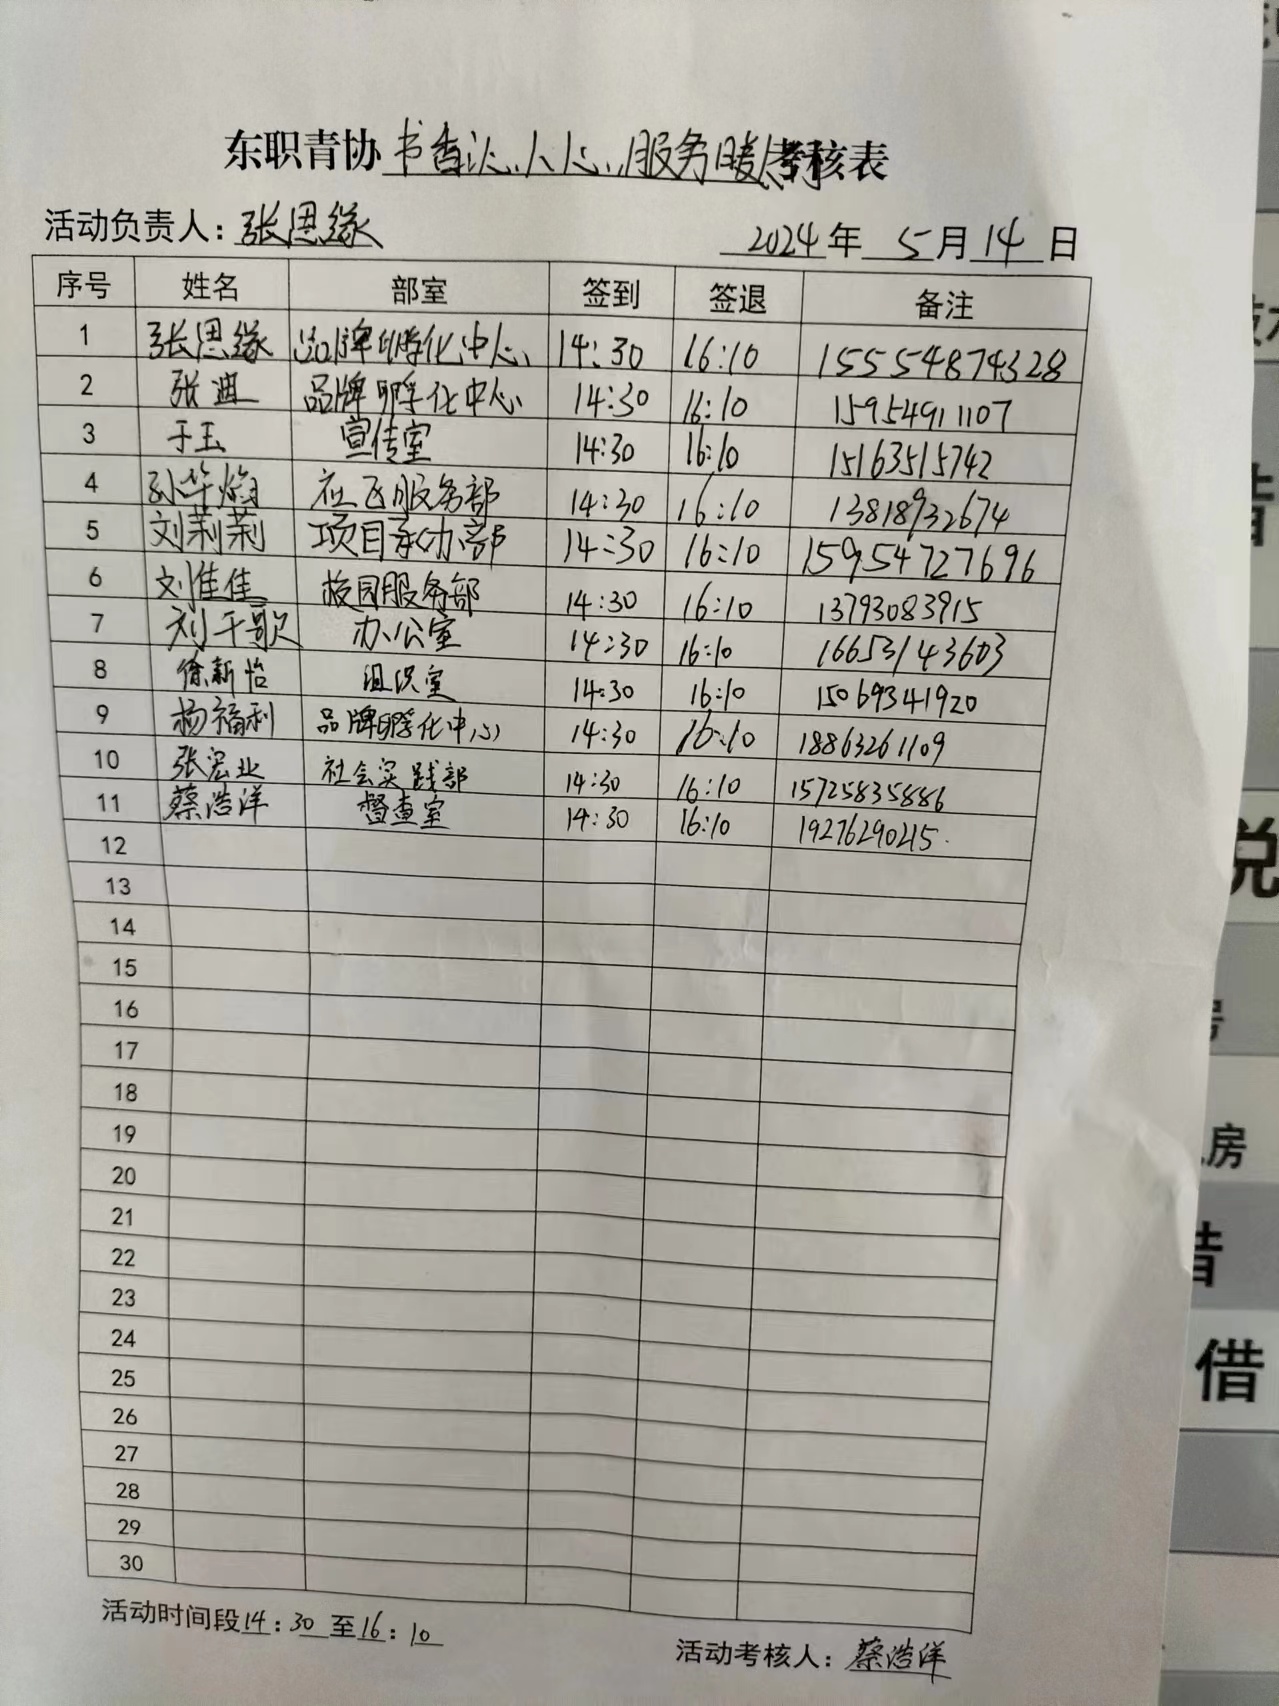 东职青协书香沁人心,服务暖考核表
活动负责人：张思缘 2024年 5月14日
序号 姓名 部室 签到 签退 备注
1 张思缘 品牌孵化中心 14:30 16:10 15554874328
2 张迪 品牌孵化中心 14:30 16:10 15954911107
3 于玉 宣传室 14:30 16:10 15163515742
4 孙华 社区服务部 14:30 16:10 13818932674
5 刘莉莉 项目承办部 14:30 16:10 15954727696
6 刘佳佳 校园服务部 14:30 16:10 13793083915
7 刘千歌 办公室 14:30 16:10 16653143603
8 徐新怡 组织室 14:30 16:10 15069341920
9 杨福利 品牌孵化中心 14:30 16:10 18863261109
10 张宏业 社会实践部 14:30 16:10 15725835886
11 蔡浩洋 督查室 14:30 16:10 19276290215
12
13
14
15
16
17
18
19
20
21
22
23
24
25
26
27
28
29
30
活动时间段14：30至16：10
活动考核人：蔡浩洋
房
借